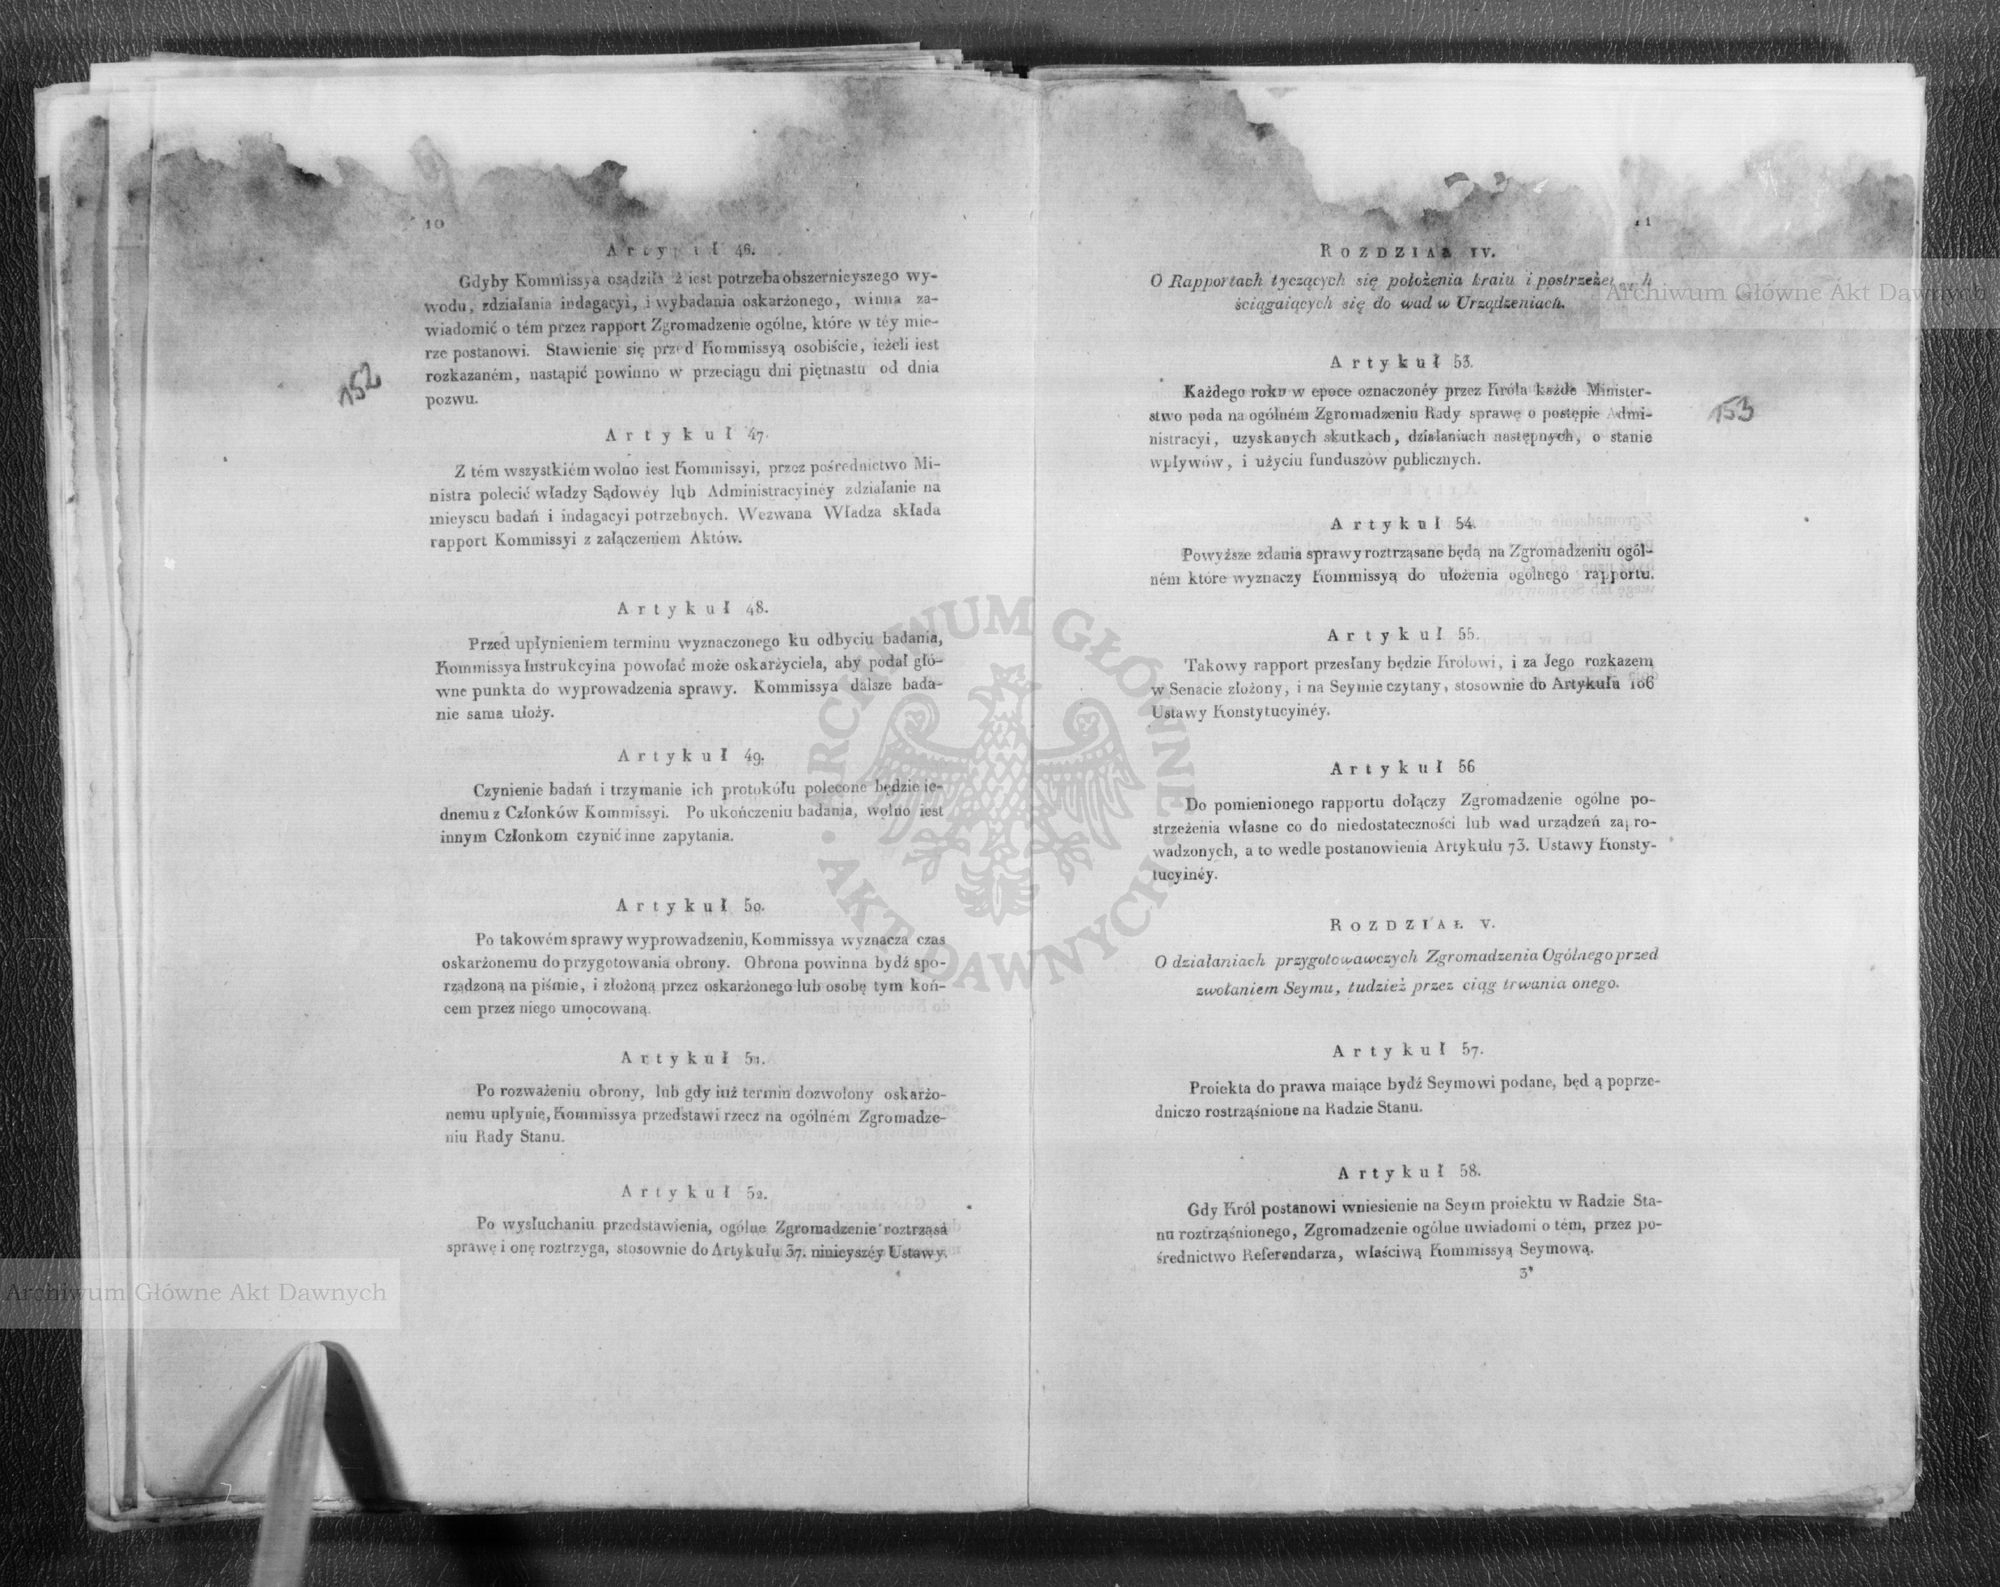 10
Artykuł 46.
Gdyby Kommissya osądziła ż iest potrzeba obszernieyszego wy-
wodu, zdziałania indagacyi, i wybadania oskarżonego, winna za-
wiadomić o tém przez rapport Zgromadzenie ogólne, które w téy mie-
rze postanowi. Stawienie się przed Kommissyą osobiście, ieżeli iest
rozkazaném, nastąpić powinno w przeciągu dni piętnastu od dnia
pozwu.
152
Artykuł 47.
Z tém wszystkiém wolno iest Kommissyi, przez pośrednictwo Mi-
nistra polecić władzy Sądowéy lub Administracyinéy zdziałanie na
mieyscu badań i indagacyi potrzebnych. Wezwana Władza składa
rapport Kommissyi z załączeniem Aktów.
Artykuł 48.
Przed upłynieniem terminu wyznaczonego ku odbyciu badania,
Kommissya Instrukcyina powołać może oskarżyciela, aby podał głó-
wne punkta do wyprowadzenia sprawy. Kommissya dalsze bada-
nie sama ułoży.
Artykuł 49.
Czynienie badań i trzymanie ich protokółu polecone będzie ie-
dnemu z Członków Kommissyi. Po ukończeniu badania, wolno iest
innym Członkom czynić inne zapytania.
Artykuł 50.
Po takowém sprawy wyprowadzeniu, Kommissya wyznacza czas
oskarżonemu do przygotowania obrony. Obrona powinna bydź spo-
rządzoną na piśmie, i złożoną przez oskarżonego lub osobę tym koń-
cem przez niego umocowaną.
Artykuł 51.
Po rozważeniu obrony, lub gdy iuż termin dozwolony oskarżo-
nemu upłynie, Kommissya przedstawi rzecz na ogólném Zgromadze-
niu Rady Stanu.
Artykuł 52.
Po wysłuchaniu przedstawienia, ogólne Zgromadzenie roztrząsa
sprawę i onę roztrzyga, stosownie do Artykułu 37. ninieyszéy Ustawy.
11
ROZDZIAŁ IV.
O Rapportach tyczących się położenia kraiu i postrzeżeniach
ściągaiących się do wad w Urządzeniach.
Artykuł 53.
Każdego roku w epoce oznaczonéy przez Króla każde Minister-
stwo poda na ogólném Zgromadzeniu Rady sprawę o postępie Admi-
nistracyi, uzyskanych skutkach, działaniach następnych, o stanie
wpływów, i użyciu funduszów publicznych.
153
Artykuł 54.
Powyższe zdania sprawy roztrząsane będą na Zgromadzeniu ogól-
ném które wyznaczy Kommissyą do ułożenia ogólnego rapportu.
Artykuł 55.
Takowy rapport przesłany będzie Królowi, i za Jego rozkazem
w Senacie złożony, i na Seymie czytany, stosownie do Artykułu 106
Ustawy Konstytucyinéy.
Artykuł 56
Do pomienionego rapportu dołączy Zgromadzenie ogólne po-
strzeżenia własne co do niedostateczności lub wad urządzeń zapro-
wadzonych, a to wedle postanowienia Artykułu 73. Ustawy Konsty-
tucyinéy.
ROZDZIAŁ V.
O działaniach przygotowawczych Zgromadzenia Ogólnego przed
zwołaniem Seymu, tudzież przez ciąg trwania onego.
Artykuł 57.
Proiekta do prawa maiące bydź Seymowi podane, będą poprze-
dniczo rostrząśnione na Radzie Stanu.
Artykuł 58.
Gdy Król postanowi wniesienie na Seym proiektu w Radzie Sta-
nu roztrząśnionego, Zgromadzenie ogólne uwiadomi o tém, przez po-
średnictwo Referendarza, właściwą Kommissyą Seymową.
3*
Archiwum Główne Akt Dawnych
Archiwum Główne Akt Dawnych
ARCHIWUM GŁÓWNE
AKT DAWNYCH